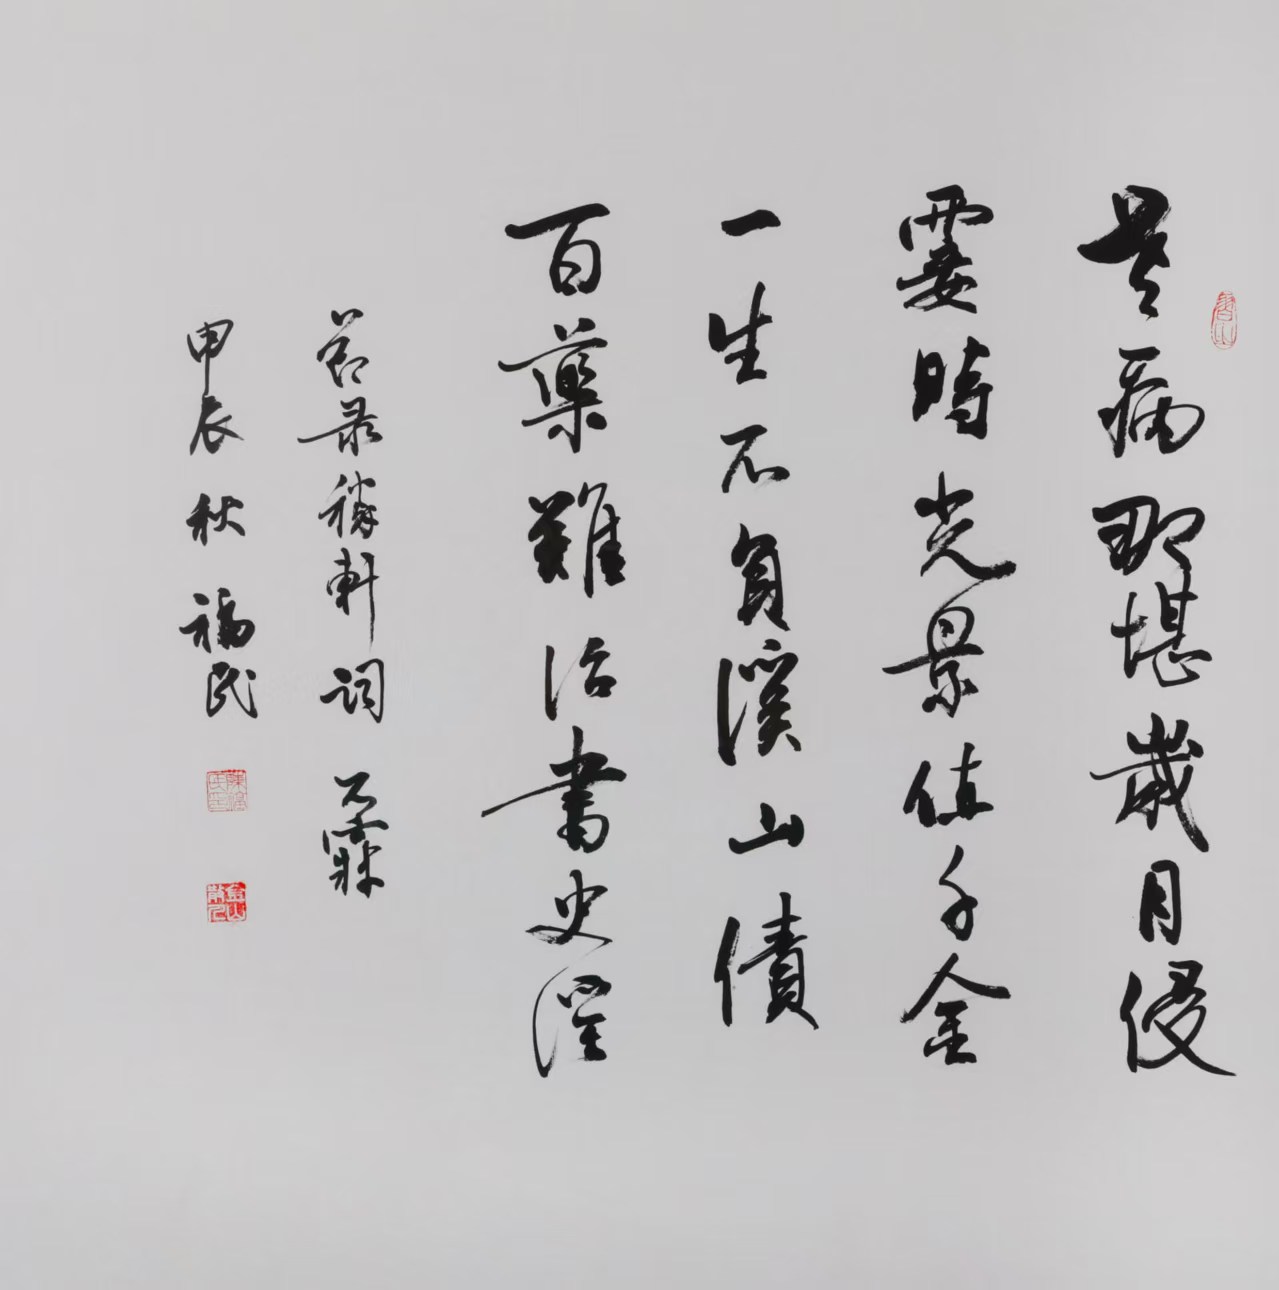 老病那堪歲月侵
霎時光景值千金
一生不負溪山債
百藥難治書史淫
节录稼軒詞
甲辰秋 福民